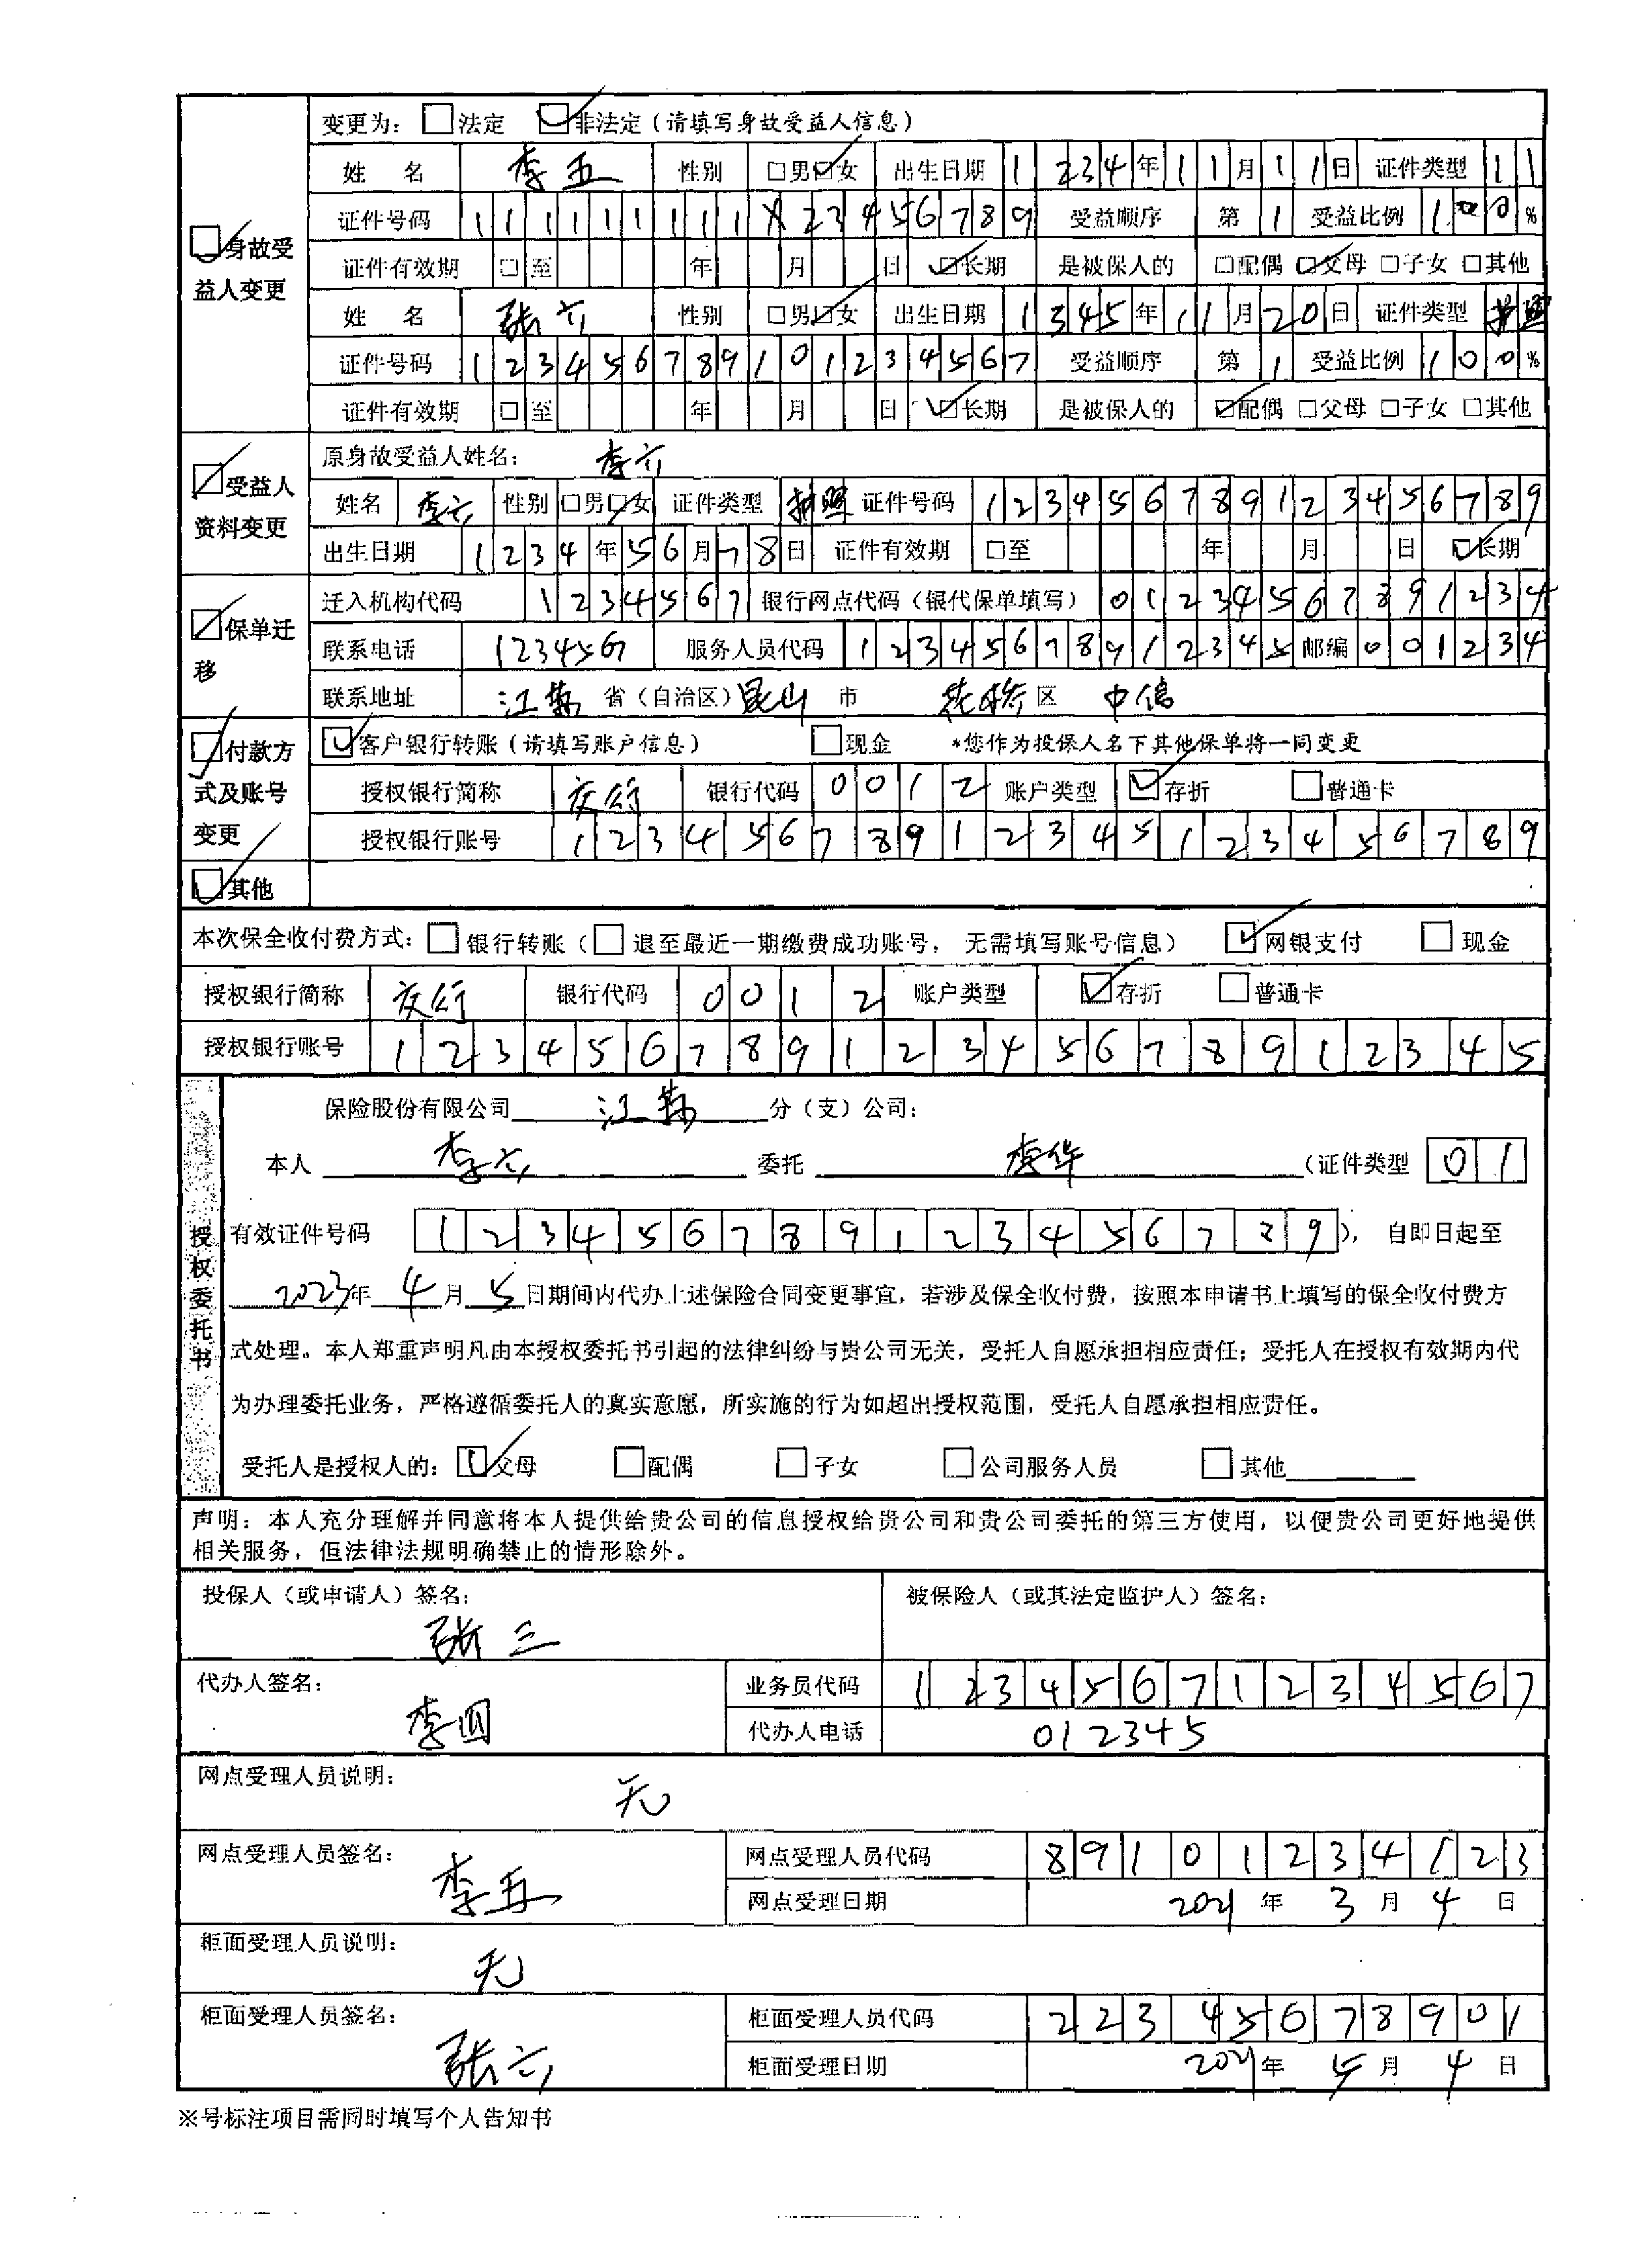 变更为：□法定 ☑非法定（请填写身故受益人信息）
☑身故受益人变更
姓 名 李五 性别 □男☑女 出生日期 1234年11月11日 证件类型 11
证件号码 111111111X23456789 受益顺序 第1 受益比例 100%
证件有效期 □至 年 月 日 ☑长期 是被保人的 □配偶 ☑父母 □子女 □其他
姓 名 张六 性别 □男☑女 出生日期 1345年11月20日 证件类型 护照
证件号码 123456789101234567 受益顺序 第1 受益比例 100%
证件有效期 □至 年 月 日 ☑长期 是被保人的 ☑配偶 □父母 □子女 □其他
☑受益人资料变更
原身故受益人姓名： 李六
姓名 李六 性别 □男☑女 证件类型 护照 证件号码 123456789123456789
出生日期 1234年56月78日 证件有效期 □至 年 月 日 ☑长期
☑保单迁移
迁入机构代码 1234567 银行网点代码（银代保单填写） 01234567891234
联系电话 1234567 服务人员代码 12345678912345 邮编 001234
联系地址 江苏 省（自治区）昆山 市 花桥 区 中信
☑付款方式及账号变更
☑客户银行转账（请填写账户信息） □现金 *您作为投保人名下其他保单将一同变更
授权银行简称 交行 银行代码 0012 账户类型 ☑存折 □普通卡
授权银行账号 12345678912345123456789
☑其他
本次保全收付费方式：□银行转账（□退至最近一期缴费成功账号，无需填写账号信息） ☑网银支付 □现金
授权银行简称 交行 银行代码 0012 账户类型 ☑存折 □普通卡
授权银行账号 12345678912345678912345
授权委托书
保险股份有限公司 江苏 分（支）公司：
本人 李六 委托 李华 （证件类型 01
有效证件号码 123456789123456789），自即日起至
2023年 4月 5日期间内代办上述保险合同变更事宜，若涉及保全收付费，按照本申请书上填写的保全收付费方
式处理。本人郑重声明凡由本授权委托书引起的法律纠纷与贵公司无关，受托人自愿承担相应责任；受托人在授权有效期内代
为办理委托业务，严格遵循委托人的真实意愿，所实施的行为如超出授权范围，受托人自愿承担相应责任。
受托人是授权人的：☑父母 □配偶 □子女 □公司服务人员 □其他
声明：本人充分理解并同意将本人提供给贵公司的信息授权给贵公司和贵公司委托的第三方使用，以便贵公司更好地提供
相关服务，但法律法规明确禁止的情形除外。
投保人（或申请人）签名： 张三 被保险人（或其法定监护人）签名：
代办人签名： 李四 业务员代码 12345671234567
代办人电话 012345
网点受理人员说明： 无
网点受理人员签名： 李五 网点受理人员代码 89101234123
网点受理日期 2021年 3月 4日
柜面受理人员说明： 无
柜面受理人员签名： 张六 柜面受理人员代码 22345678901
柜面受理日期 2021年 5月 4日
※号标注项目需同时填写个人告知书